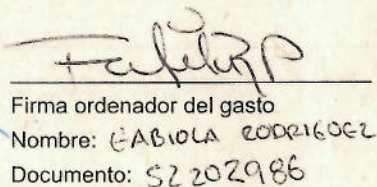 Firma ordenador del gasto
Nombre: FABIOLA RODRIGUEZ
Documento: 52202986